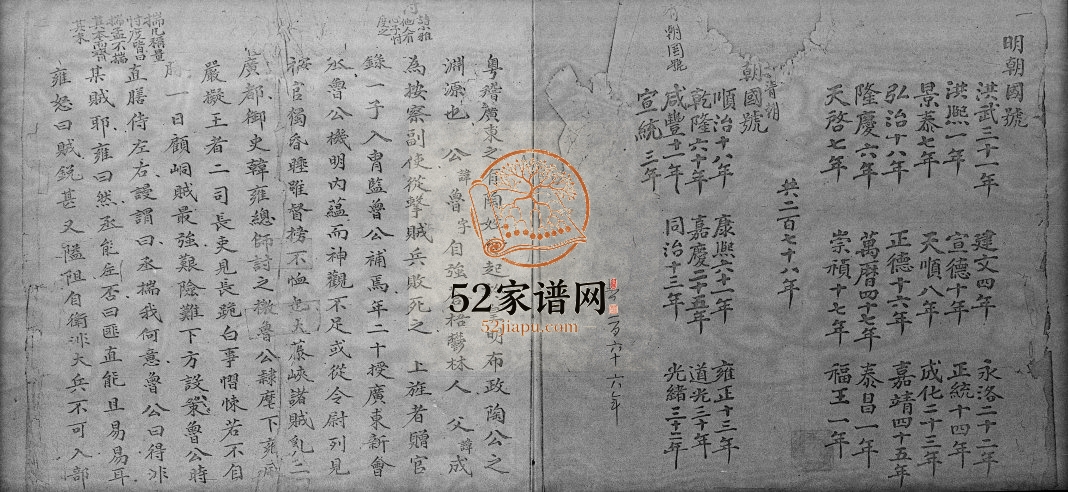 明朝國號
洪武三十一年 建文四年 永洛二十二年
洪熙一年 宣德十年 正統十四年
景泰七年 天順八年 成化二十三年
弘治十八年 正德十六年 嘉靖四十五年
隆慶六年 萬曆四十七年 泰昌一年
天啓七年 崇禎十七年 福王一年
共二百七十八年
大清朝國號
順治十八年 康熙六十一年 雍正十三年
乾隆六十年 嘉慶二十五年 道光三十年
咸豐十一年 同治十三年 光緒三十二年
宣統三年
二百六十六年
朝國號
粤稽廣東之有陶姓 起 明布政陶公之
淵源也 公諱魯字自強 欝林人 父諱成
為按察副使從擊賊兵敗死之 上旌者贈官
錄一子入胄監魯公補焉年二十授廣東新會
丞魯公機明內蘊而神觀不足或從令尉列見
按官獨昏睡雖督榜不恤也大藤峽諸賊乱二
廣都御史韓雍總師討之檄魯公隷麾下雍
嚴擬王者二司長吏見長跪白事慴悚若不自
一日顧峒賊最強艱險難下方設策魯公時
直膳侍左右謾謂曰丞揣我何意魯公曰得非
某賊耶雍曰然丞能無否曰匪直能且易易耳
雍怒曰賊銳甚又隘阻自衛非大兵不可入部
詩雅
他人有
心予忖
度之
揣凡稱量
忖度皆曰
揣孟不揣
其本而齊
其末
52家谱网
52jiapu.com